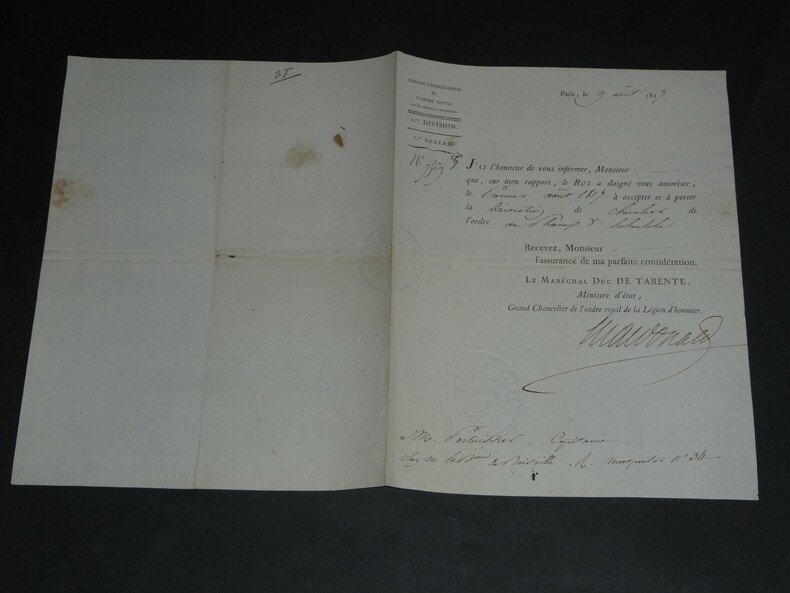 28
GRANDE CHANCELLERIE
de
L'ORDRE ROYAL
DE LA LÉGION D'HONNEUR.
1.re DIVISION.
1.er BUREAU.
Paris, le 9 août 1817
J'AI l'honneur de vous informer, Monsieur
que, sur mon rapport, le ROI a daigné vous autoriser,
le Premier août 1817 à accepter et à porter
la Décoration de Chevalier de
l'ordre du Phénix d'hohenlohe
Recevez, Monsieur
l'assurance de ma parfaite considération.
LE MARÉCHAL DUC DE TARENTE,
Ministre d'état,
Grand Chancelier de l'ordre royal de la Légion d'honneur.
Macdonald
à M. Pertuissier Capitaine
chez m. le Bon de Boisville R. N° 34